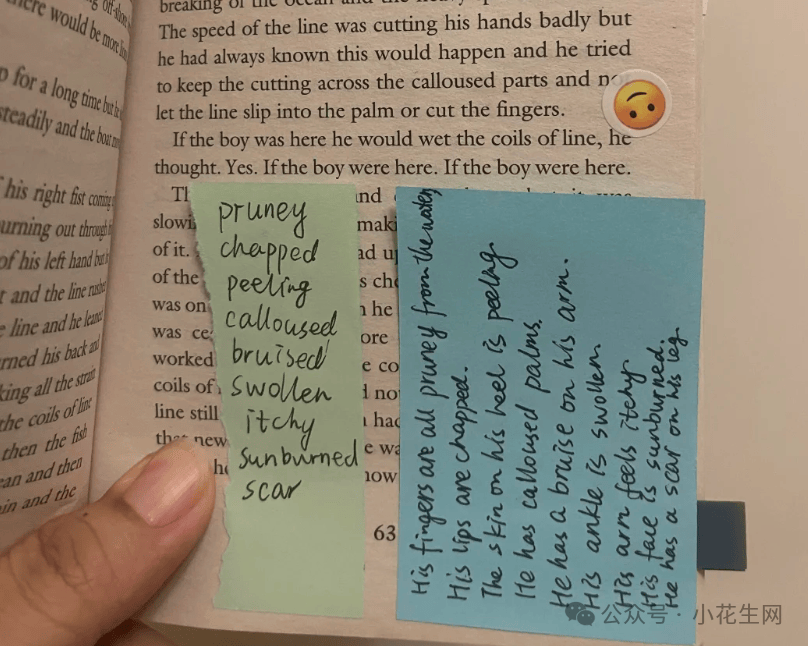 breaking of the ocean and
The speed of the line was cutting his hands badly but
he had always known this would happen and he tried
to keep the cutting across the calloused parts and
let the line slip into the palm or cut the fingers.
If the boy was here he would wet the coils of line, he
thought. Yes. If the boy were here. If the boy were here.
and
of it.
of the
was on
worked
coils of
line still
new
63
there would be more
for a long time but
steadily and the boat
his right fist coming
of his left hand but
and the line rushed
line and he leaned
his back and
all the strain
the coils of line
then the fish
and then
in and the
pruney
chapped
peeling
calloused
bruised
swollen
itchy
sunburned
scar
His fingers are all pruney from the water.
His lips are chapped.
The skin on his heel is peeling
He has calloused palms.
He has a bruise on his arm.
His ankle is swollen.
His arm feels itchy
His face is sunburned.
He has a scar on his leg.
公众号 · 小花生网